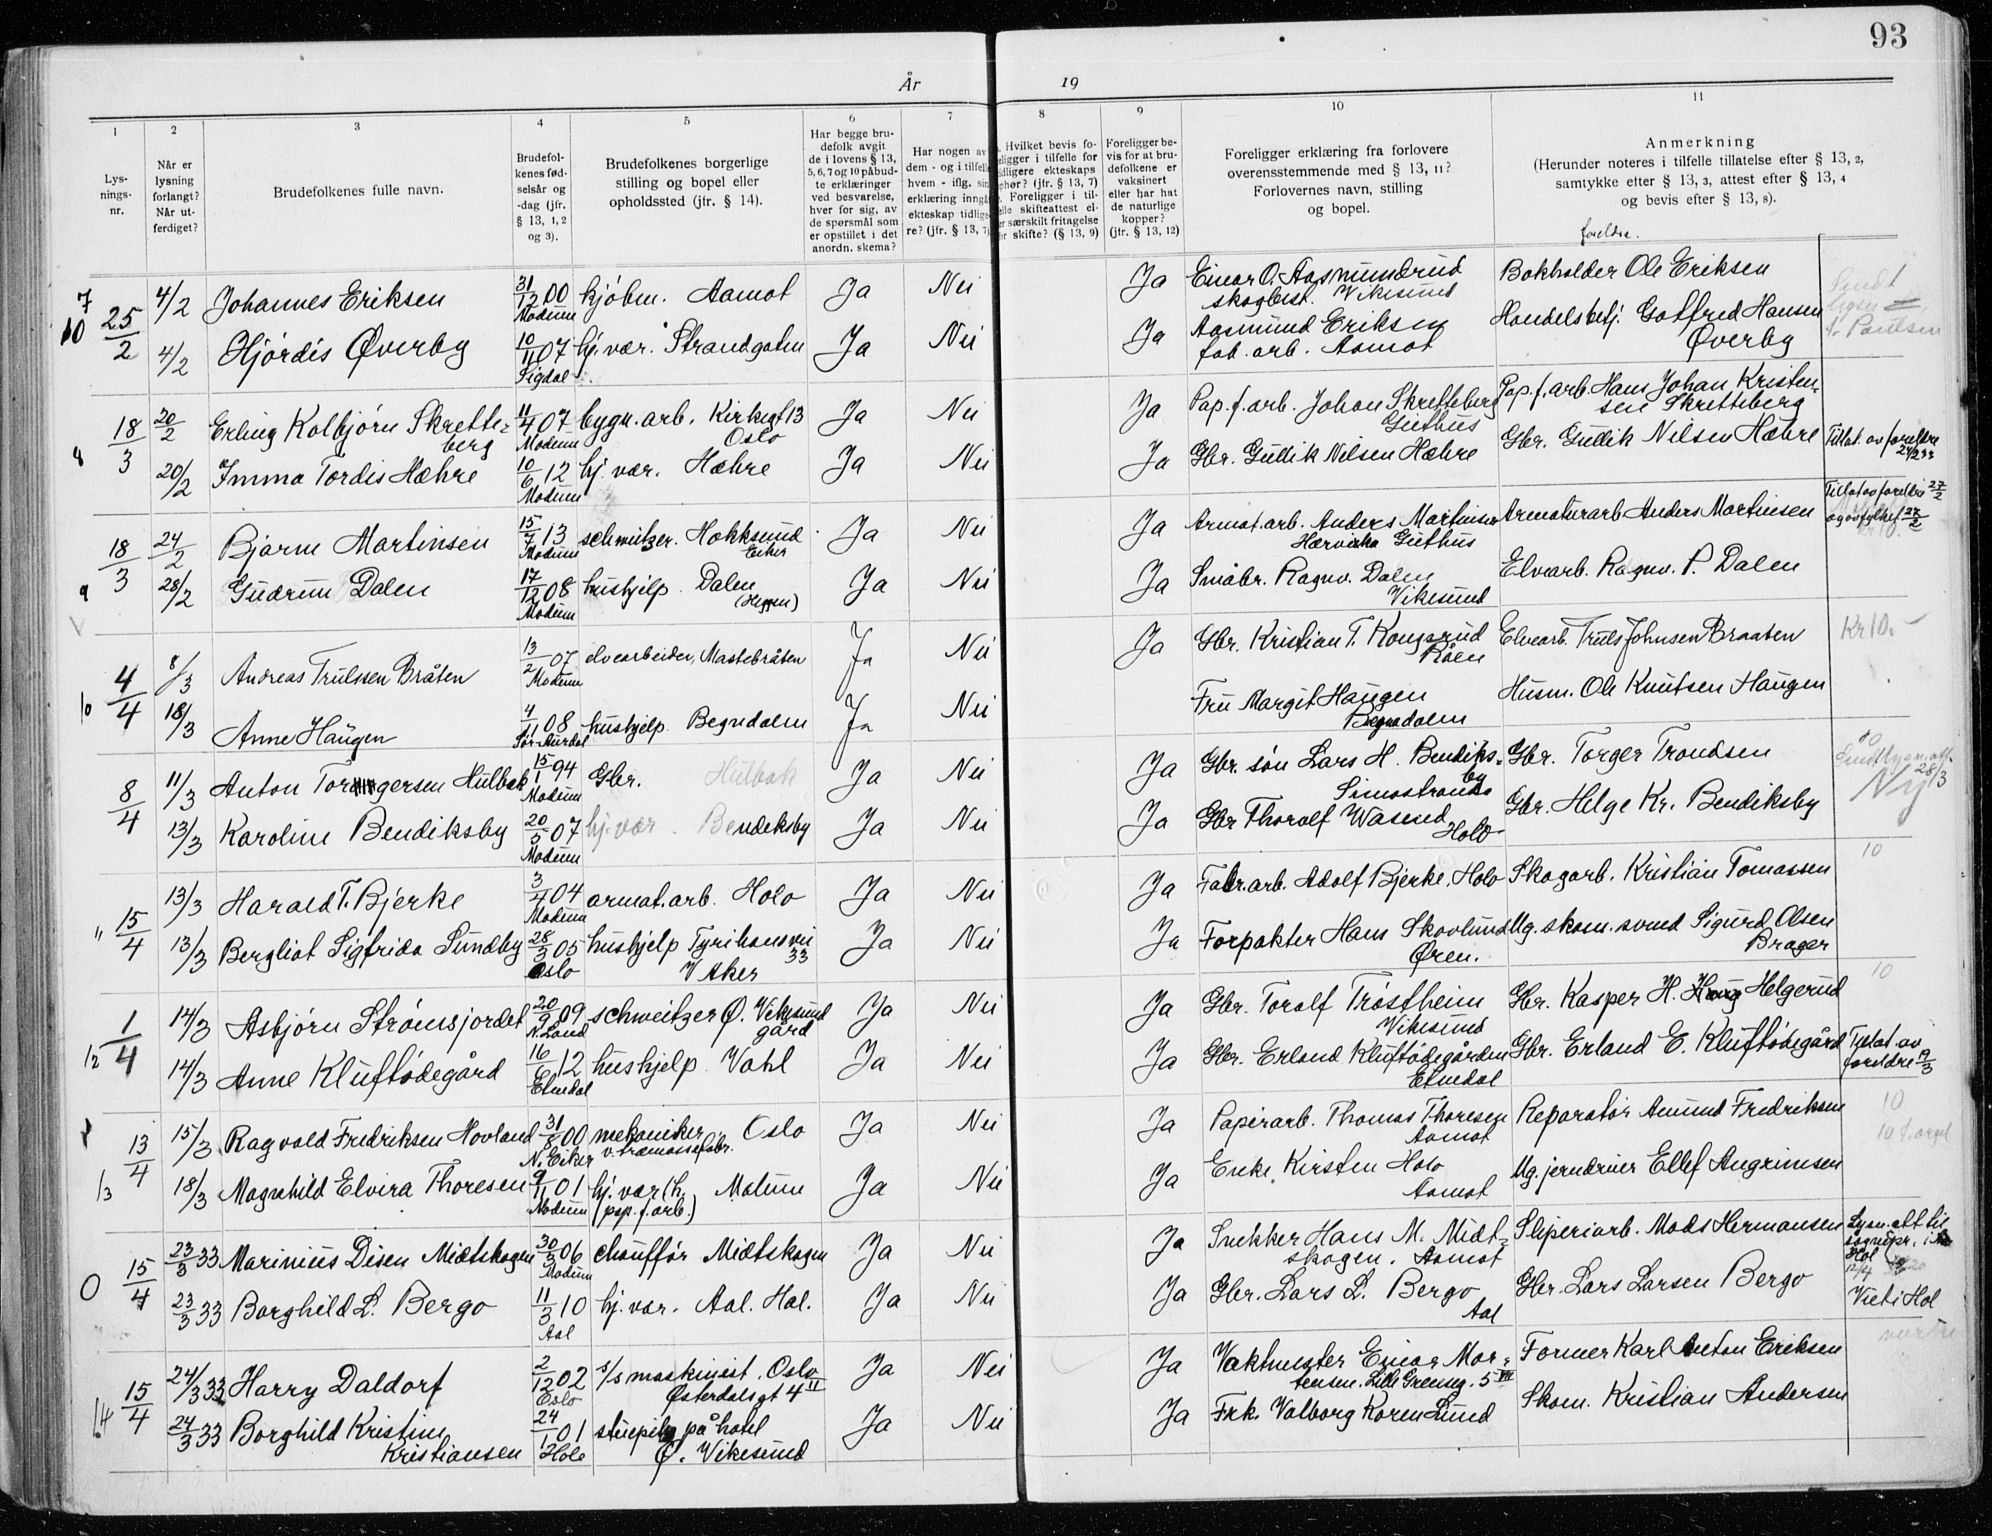 93
År 19
1 2 3 4 5 6 7 8 9 10 11
Lys-
nings-
nr.
Når er
lysning
forlangt?
Når ut-
ferdiget?
Brudefolkenes fulle navn.
Brudefol-
kenes fød-
selsår og
-dag (jfr.
§ 13, 1, 2
og 3).
Brudefolkenes borgerlige
stilling og bopel eller
opholdssted (jfr. § 14).
Har begge bru-
defolk avgit
de i lovens § 13,
5, 6, 7 og 10 påbud-
te erklæringer
ved besvarelse,
hver for sig, av
de spørsmål som
er opstillet i det
anordn. skema?
Har nogen av
dem - og i tilfelle
hvem - iflg. sin
erklæring inngått
ekteskap tidlige-
re? (jfr. § 13, 7)
Hvilket bevis fo-
religger i tilfelle for
tidligere ekteskaps
ophør? (jfr. § 13, 7)
Foreligger i til-
felle skifteattest el-
ler særskilt fritagelse
for skifte? (§ 13, 9)
Foreligger be-
vis for at bru-
defolkene er
vaksinert
eller har hat
de naturlige
kopper?
(jfr. § 13, 12)
Foreligger erklæring fra forlovere
overensstemmende med § 13, 11?
Forlovernes navn, stilling
og bopel.
Anmerkning
(Herunder noteres i tilfelle tillatelse efter § 13, 2,
samtykke efter § 13, 3, attest efter § 13, 4
og bevis efter § 13, 8).
foreldre.
7 10 25/2 4/2 Johannes Eriksen 31/12 00 Modum kjøbm. Aamot Ja Nei Ja Einar O. Aasmundrud skogbest. Vikesund Bokholder Ole Eriksen Sendt
4/2 Hjördis Øverby 10/11 07 Sigdal hj. vær. Strandgaten Ja Nei Ja Aasmund Eriksen fab. arb. Aamot Handelsbetj. Gotfred Hansen Øverby
8 18/3 20/2 Erling Kolbjörn Skretteberg 11/4 07 Modum bygn. arb. Kirkegt 13 Oslo Ja Nei Ja Pap. f. arb. Johan Skretteberg Guthus Pap. f. arb. Hans Johan Kristensen Skretteberg
20/2 Imma Tordis Hæhre 10/6 12 Modum hj. vær. Hæhre Ja Nei Ja Gbr. Gudik Nilsen Hæhre Gbr. Gudik Nilsen Hæhre Tillat. av foreldre 24/2 33
9 18/3 24/2 Bjarne Martinsen 15/7 13 Modum schweitzer. Hokksund Eiker Ja Nei Ja Armat. arb. Anders Martinsen Hærvika Guthus Armaturarb Anders Martinsen Tillat av foreldre 27/2 og av fylket 27/2
28/2 Gudrun Dalen 17/12 08 Modum hushjelp. Dalen (Heggen) Ja Nei Ja Småbr. Ragnv. Dalen Vikesund Elvearb. Ragnv. P. Dalen
10 4/4 8/3 Andreas Trulssen Bråten 13/2 07 Modum elvearbeider, Mastebråten Ja Nei Ja Gbr. Kristian T. Kongsrud Råen Elvearb. Truls Johnsen Braaten Kr 10.-
18/3 Anne Haugen 4/11 08 Sør-Aurdal hushjelp Begndalen Ja Nei Fru Margit Haugen Begnadalen Husm. Ole Knutsen Haugen
8/4 11/3 Anton Torgersen Hulbak 15/1 94 Modum Gbr. Hulbak Ja Nei Ja Gbr. søn Lars H. Bendiksby Simostranda Gbr. Torger Trondsen 10 28/3
13/3 Karoline Bendiksby 20/5 07 Modum hj. vær. Bendeksby Ja Nei Ja Gbr Thorolf Wasend Holo Gbr. Helge Kr. Bendiksby
11 15/4 13/3 Harald T. Bjerke 3/4 04 Modum armat. arb. Holo Ja Nei Ja Fabr. arb. Adolf Bjerke. Holo Skogarb. Kristian Tomassen 10
13/3 Bergliot Sigfrida Sundby 28/3 05 Oslo hushjelp Tyrihansvei 33 V Aker Ja Nei Ja Forpakter Hans Skovlund Øren. Ug. skom. svend Sigurd Olsen Brager
12 1/4 14/3 Asbjørn Strømsjordet 20/2 09 N. Land schweitzer Ø. Vikesund gård Ja Nei Ja Gbr. Toralf Tröstheim Vikesund Gbr. Kasper H. Helgerud 10
14/3 Anne Kluftødegård 16/6 12 Etnedal hushjelp. Vahl Ja Nei Ja Gbr. Erland Kluftødegården Etnedal Gbr. Erland E. Kluftødegård Tillat. av foreldre 19/3
13 13/4 15/3 Ragvald Fredriksen Hovland 31/8 00 N. Eiker mekaniker v. træmassefabr. Oslo Ja Nei Ja Papirarb. Thomas Thoresen Aamot Reparatör Amund Fredriksen 10
18/3 Magnhild Elvira Thoresen 9/11 01 Modum hj. vær (h. (pap. f. arb.) Modum Ja Nei Ja Enke Kirsten Holo Aamot Ug. jerndreier Ellef Angrimsen
0 15/4 23/3 33 Marinius Disen Midtskogen 30/3 06 Modum chauffør Midtskogen Ja Nei Ja Snekker Hans M. Midtskogen. Aamot Sliperiarb. Mads Hermansen Lysn. att til sognepr. i Hol 12/4
23/3 33 Borghild L. Bergo 11/3 10 Aal hj. vær. Aal. Hal. Ja Nei Ja Gbr. Lars L. Bergo Aal Gbr. Lars Larsen Bergo Viet i Hol
14 15/4 24/3 33 Harry Daldorf 2/12 02 Oslo s/s maskinist. Oslo Østerdalsgt 4 II Ja Nei Ja Vaktmester Einar Mortensen. Lille Grenseg. 5 VII Former Karl Anton Eriksen
24/3 33 Borghild Kristine Kristiansen 24/1 01 Hole stuepike på hotel Ø. Vikesund Ja Nei Ja Frk. Valborg Koren Lund Skom. Kristian Andersen